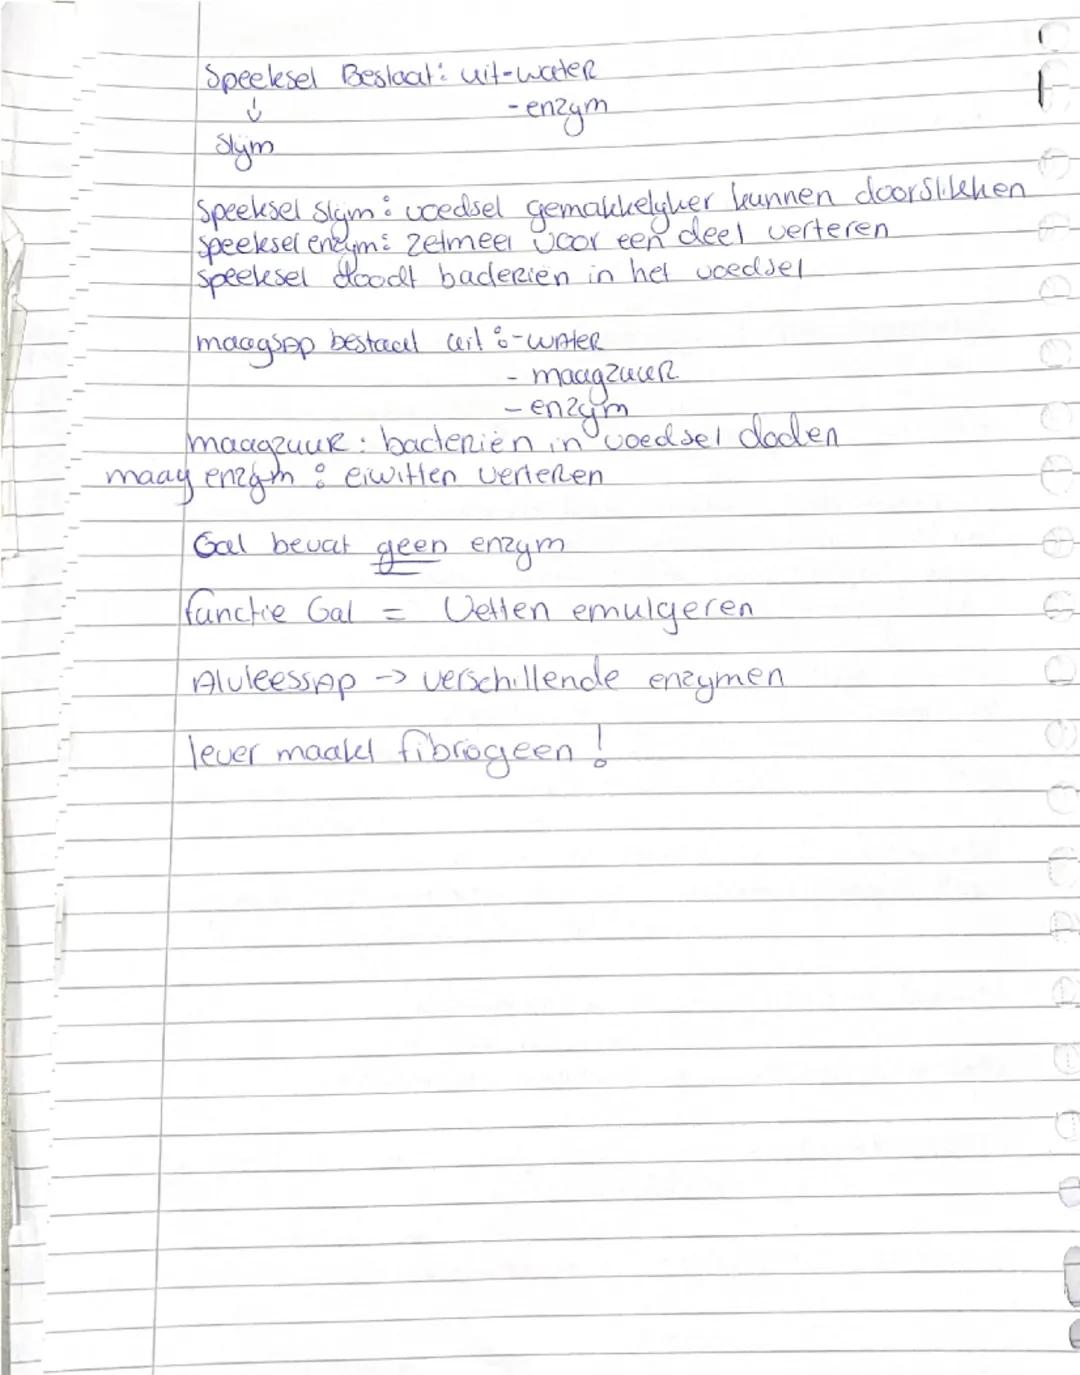 Speeksel Bestaat: uit-water
↓ - enzym
Slijm
Speeksel slijm: voedsel gemakkelijker kunnen doorslikken
speeksel enzym: zetmeel voor een deel verteren
speeksel doodt bacteriën in het voedsel
maagsap bestaat uit: -water
- maagzuur
- enzym
maagzuur: bacteriën in voedsel doden
maag enzym: eiwitten verteren
Gal bevat geen enzym
functie Gal = Vetten emulgeren
Alvleessap -> verschillende enzymen
lever maakt fibrogeen!